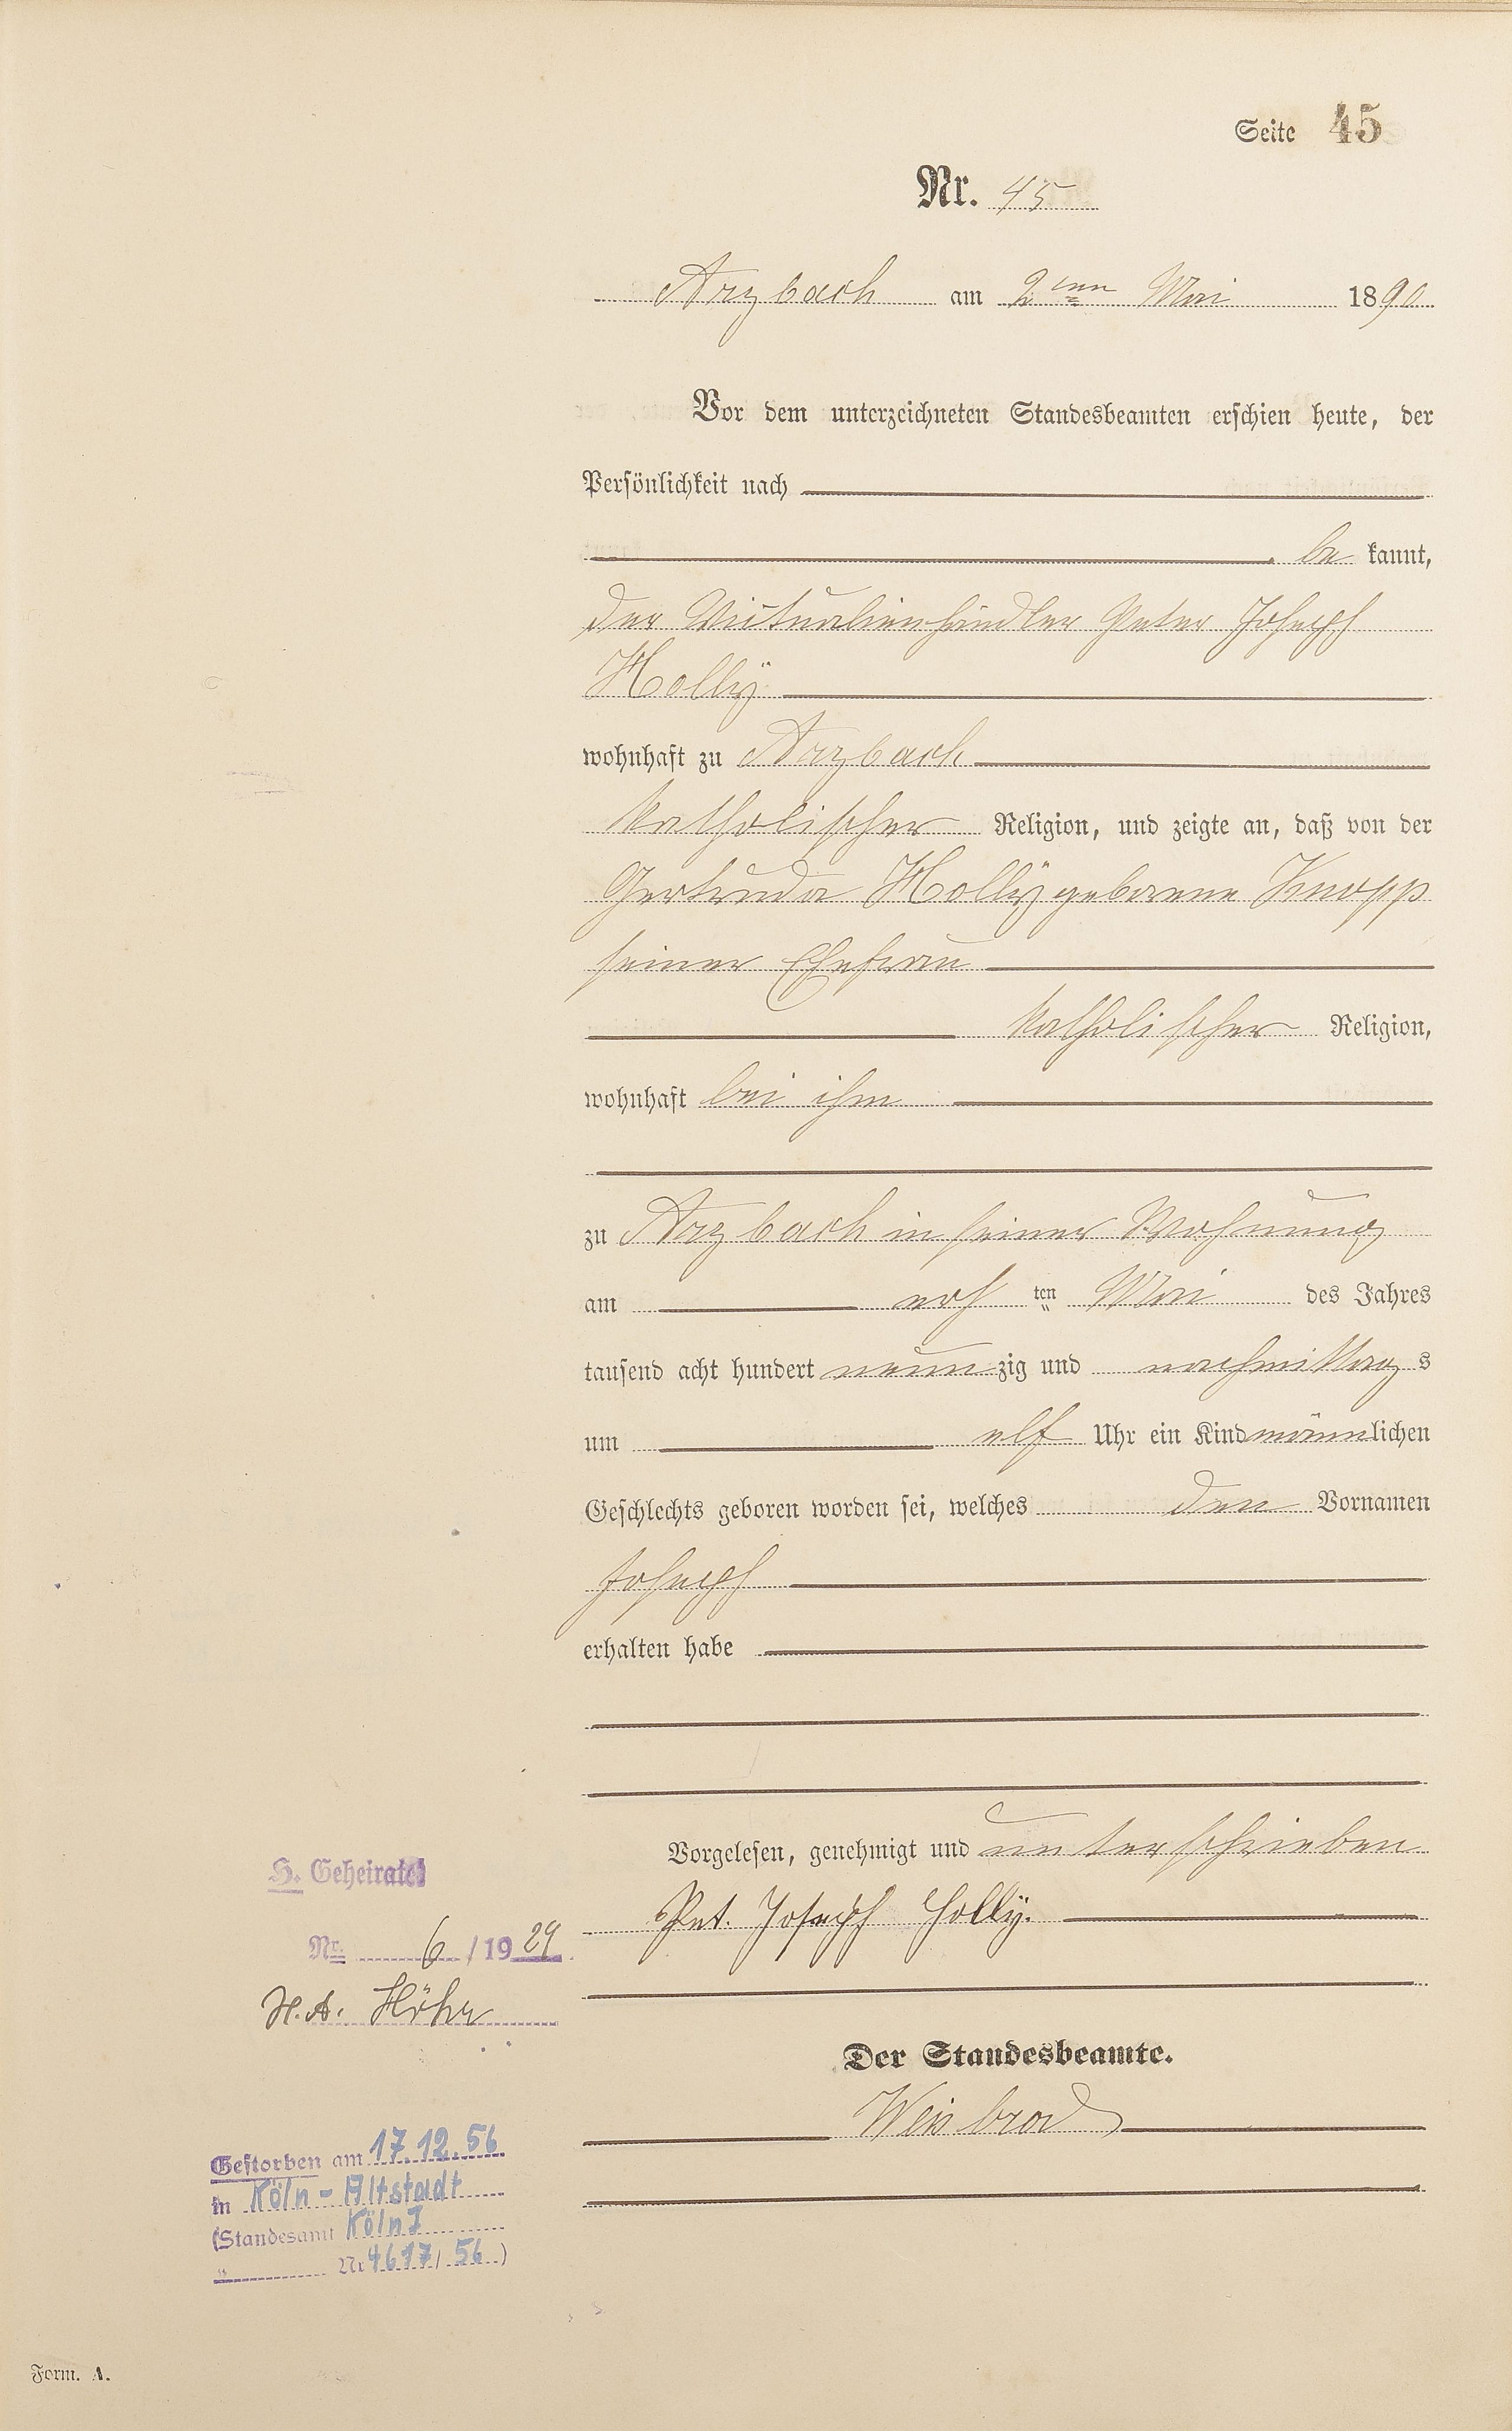 Seite 45
Nr. 45
Arzbach am 2ten Mai 1890
Vor dem unterzeichneten Standesbeamten erschien heute, der
Persönlichkeit nach
be kannt,
der Victualienhändler Peter Joseph
Holly
wohnhaft zu Arzbach
katholischer Religion, und zeigte an, daß von der
Gertruda Holly geborene Knopp
seiner Ehefrau
katholischer Religion,
wohnhaft bei ihm
zu Arzbach in seiner Wohnung
am ten Mai des Jahres
tausend acht hundert neunzig und nachmittags
um elf Uhr ein Kind männlichen
Geschlechts geboren worden sei, welches den Vornamen
Joseph
erhalten habe
Vorgelesen, genehmigt und unterschrieben
Pet. Joseph Holly.
Der Standesbeamte.
Weisbrod
H. Geheiratet
Nr. 6/1929
St. A. Höhr
Gestorben am 17.12.56
in Köln-Altstadt
(Standesamt Köln I
" Nr 4617/56)
Form. A.